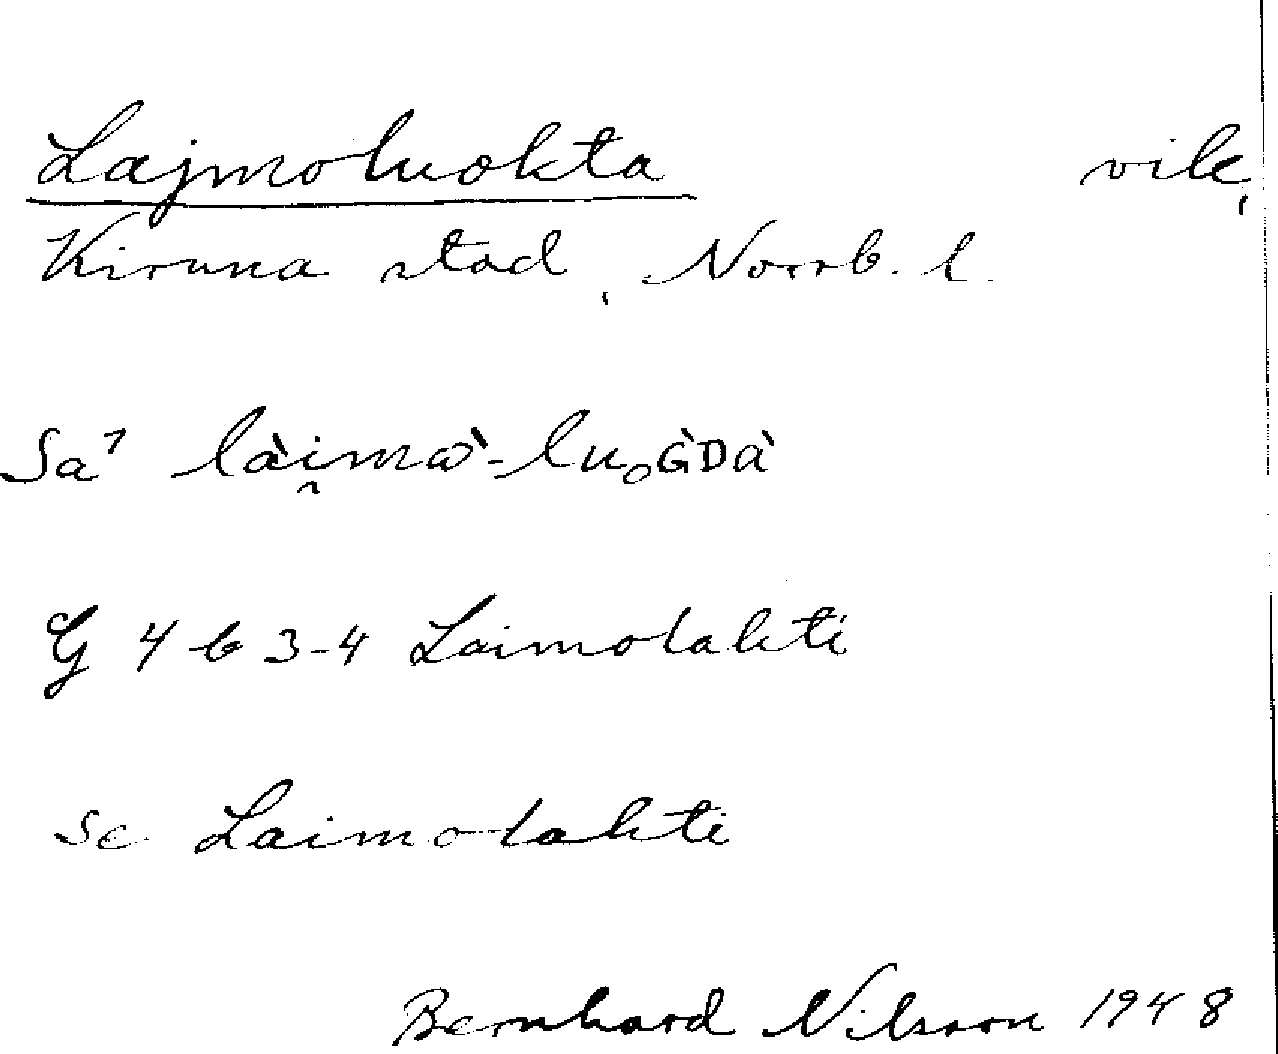 Lajmoluokta vik,
Kiruna stad, Norrb. l.
Sa¹ là̀i̯mɷ̀-luₒG̀Dà
G 4 b 3-4 Laimolahti
Se Laimolahti
Bernhard Nilsson 1948